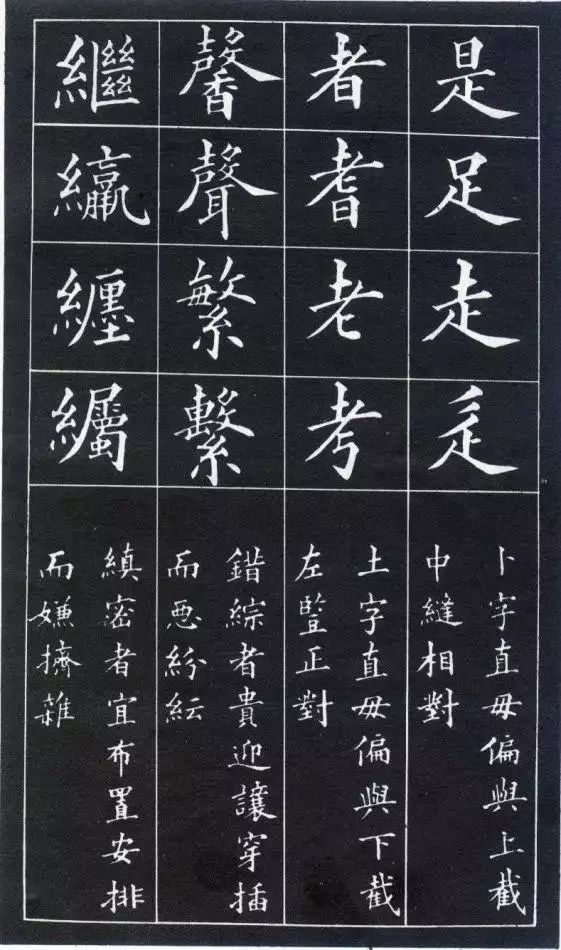 是足走辵
卜字直毋偏與上截
中縫相對
者耆老考
土字直毋偏與下截
左竪正對
馨聲繁繫
錯綜者貴迎讓穿插
而惡紛紜
繼纏
縝密者宜布置安排
而嫌擠雜